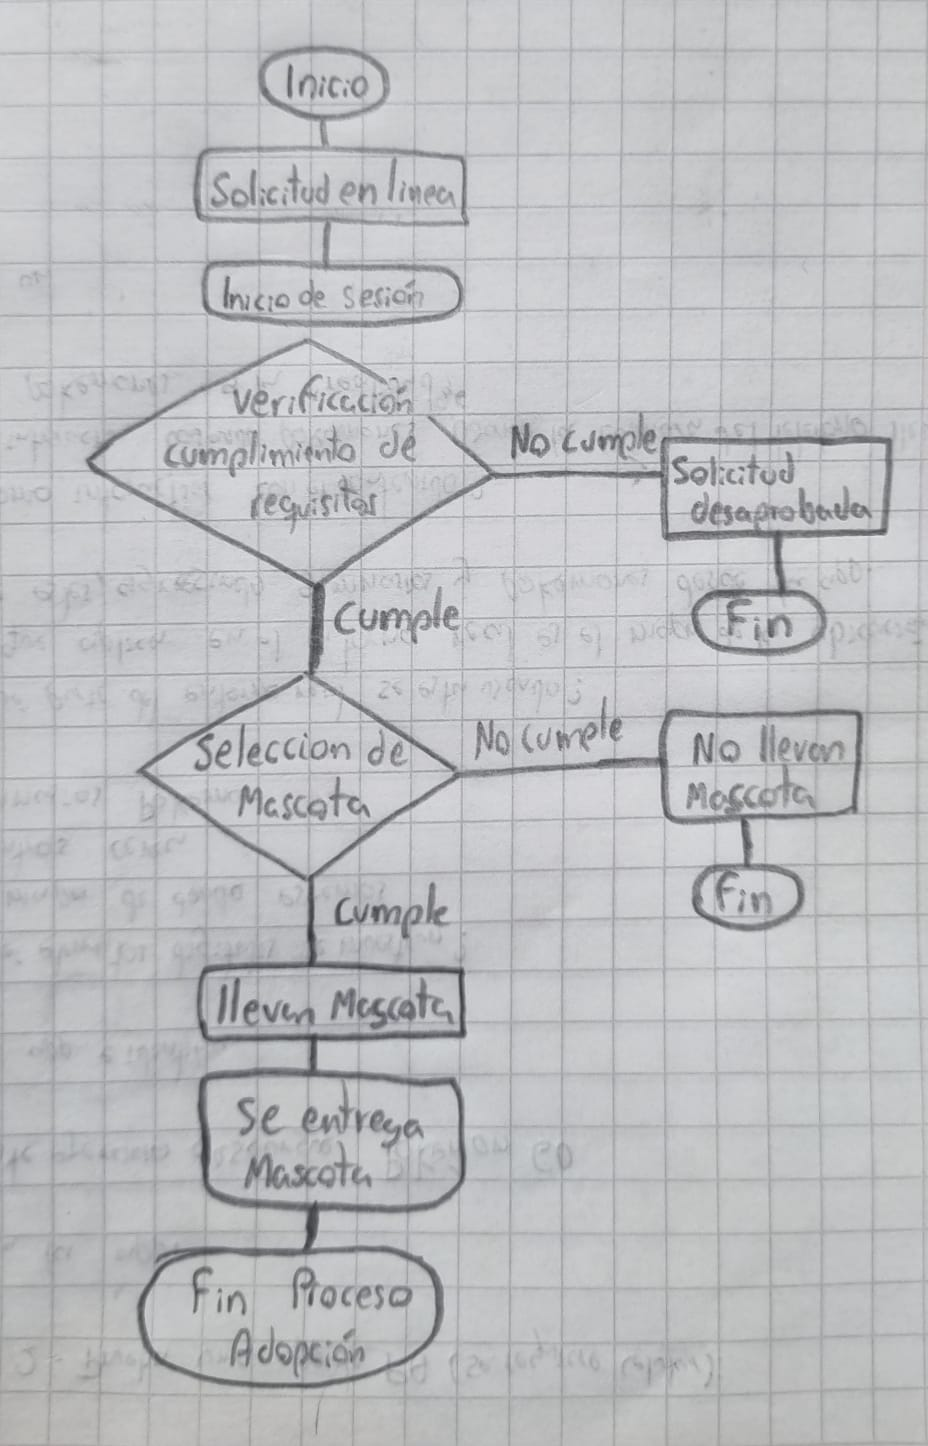 Inicio
Solicitud en linea
Inicio de sesión
Verificación
cumplimiento de
requisitos
No cumple
Solicitud
desaprobada
Fin
Cumple
Seleccion de
Mascota
No cumple
No llevan
Mascota
Fin
Cumple
llevan Mascota
Se entrega
Mascota
Fin Proceso
Adopción